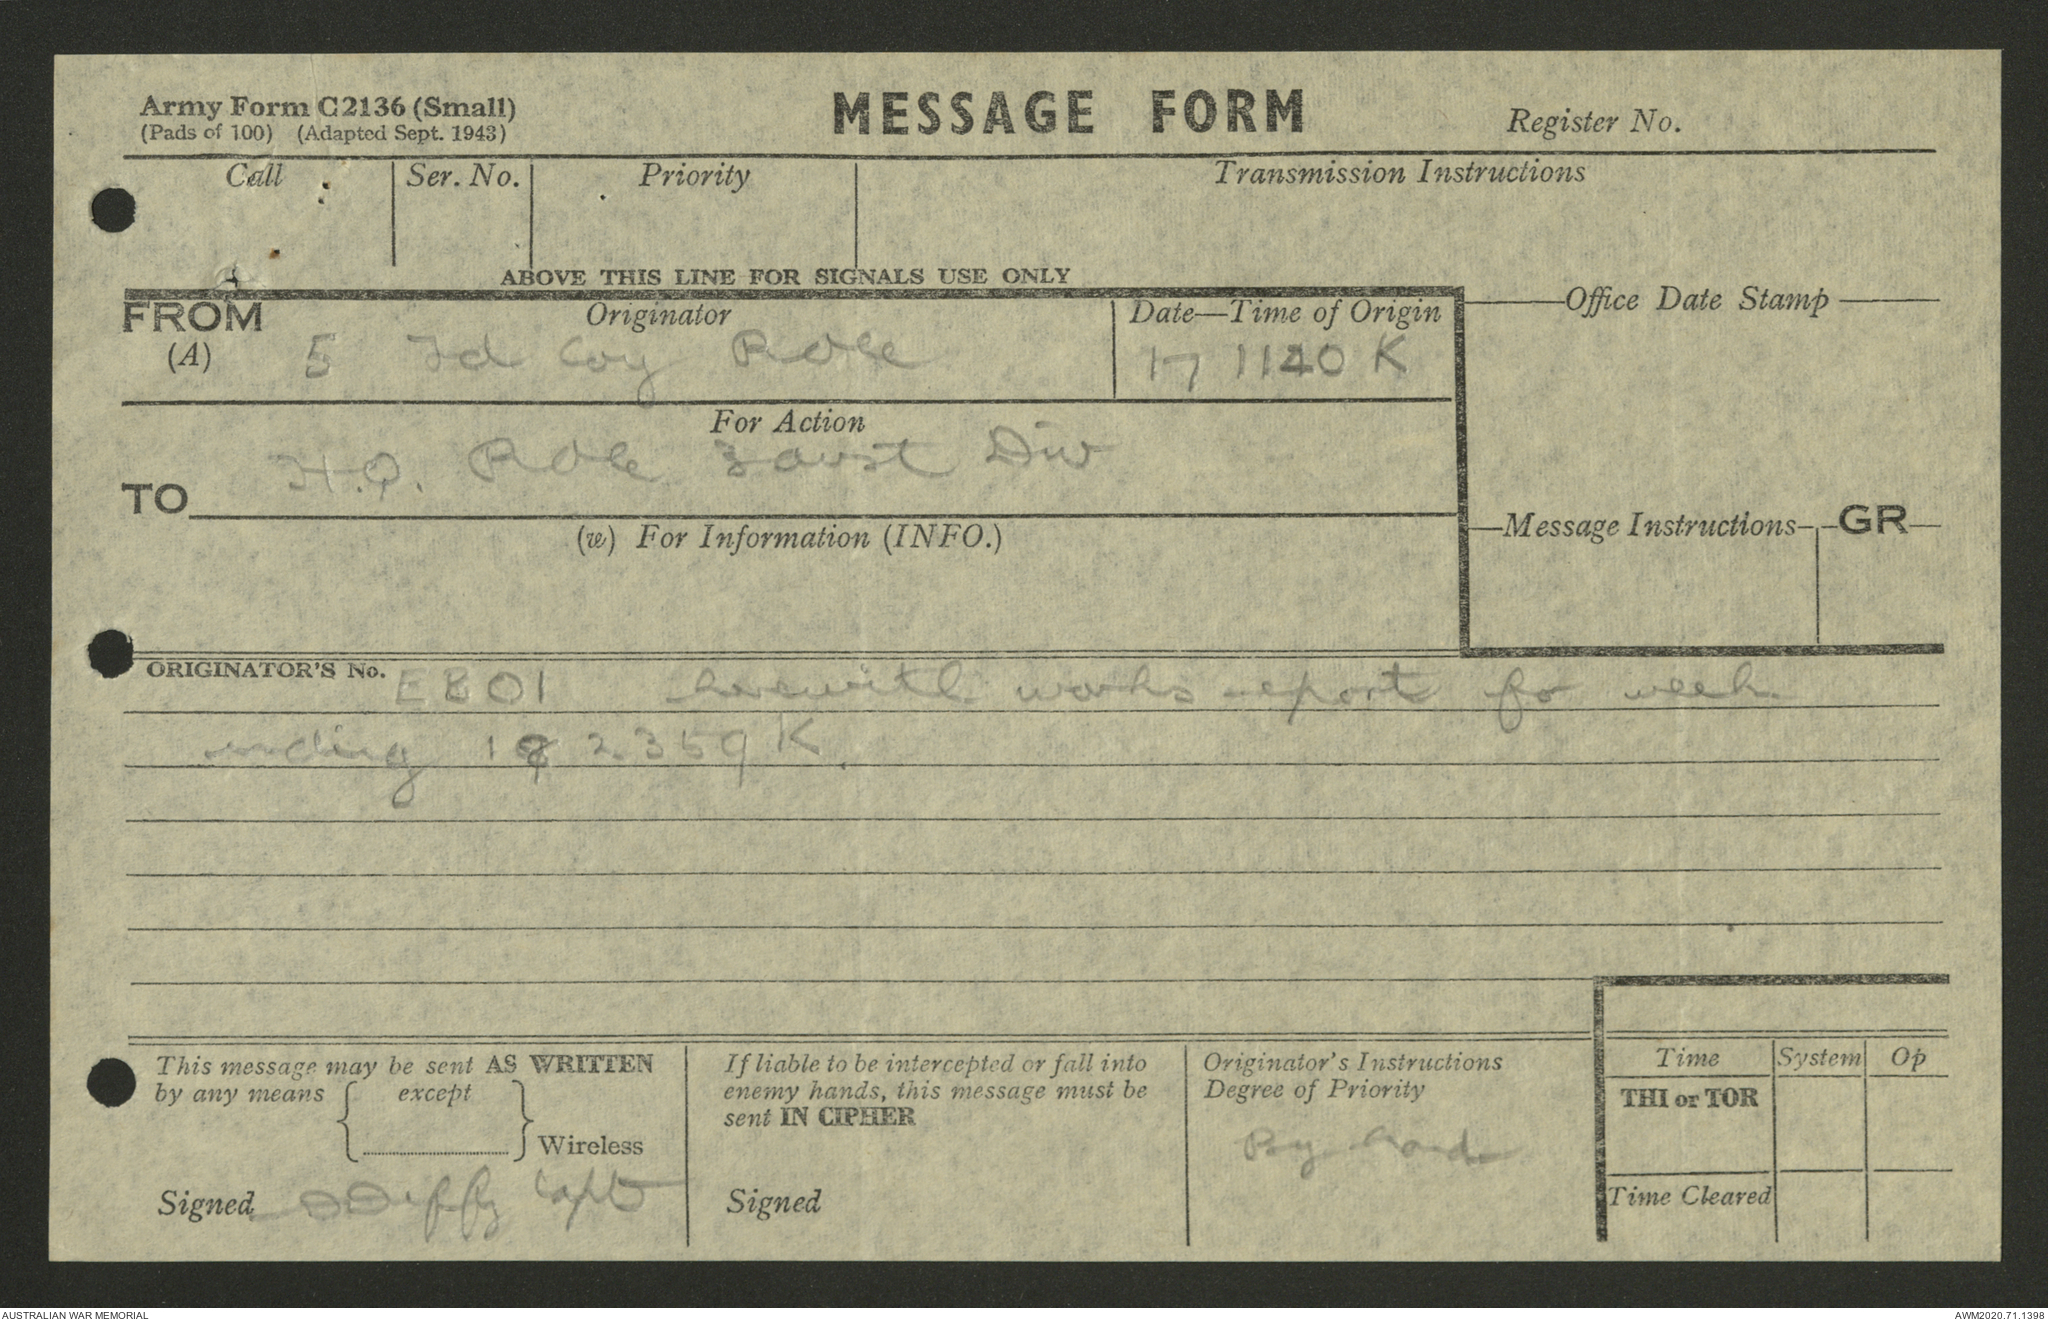 Army Form C2136 (Small)
(Pads of 100) (Adapted Sept. 1943)
MESSAGE FORM
Register No.
Call
Ser. No.
Priority
Transmission Instructions
ABOVE THIS LINE FOR SIGNALS USE ONLY
FROM
(A)
Originator
5 Fd Coy RAE
Date—Time of Origin
17 1140 K
Office Date Stamp
For Action
TO
H.Q. RAE 3 Aust Div
(w) For Information (INFO.)
Message Instructions
GR
ORIGINATOR'S No. EB01 herewith works report for week
ending 2359K.
This message may be sent AS WRITTEN
by any means { except } Wireless
Signed Capt
If liable to be intercepted or fall into
enemy hands, this message must be
sent IN CIPHER
Signed
Originator's Instructions
Degree of Priority
By hand
Time
System
Op
THI or TOR
Time Cleared
AUSTRALIAN WAR MEMORIAL
AWM2020.71.1398